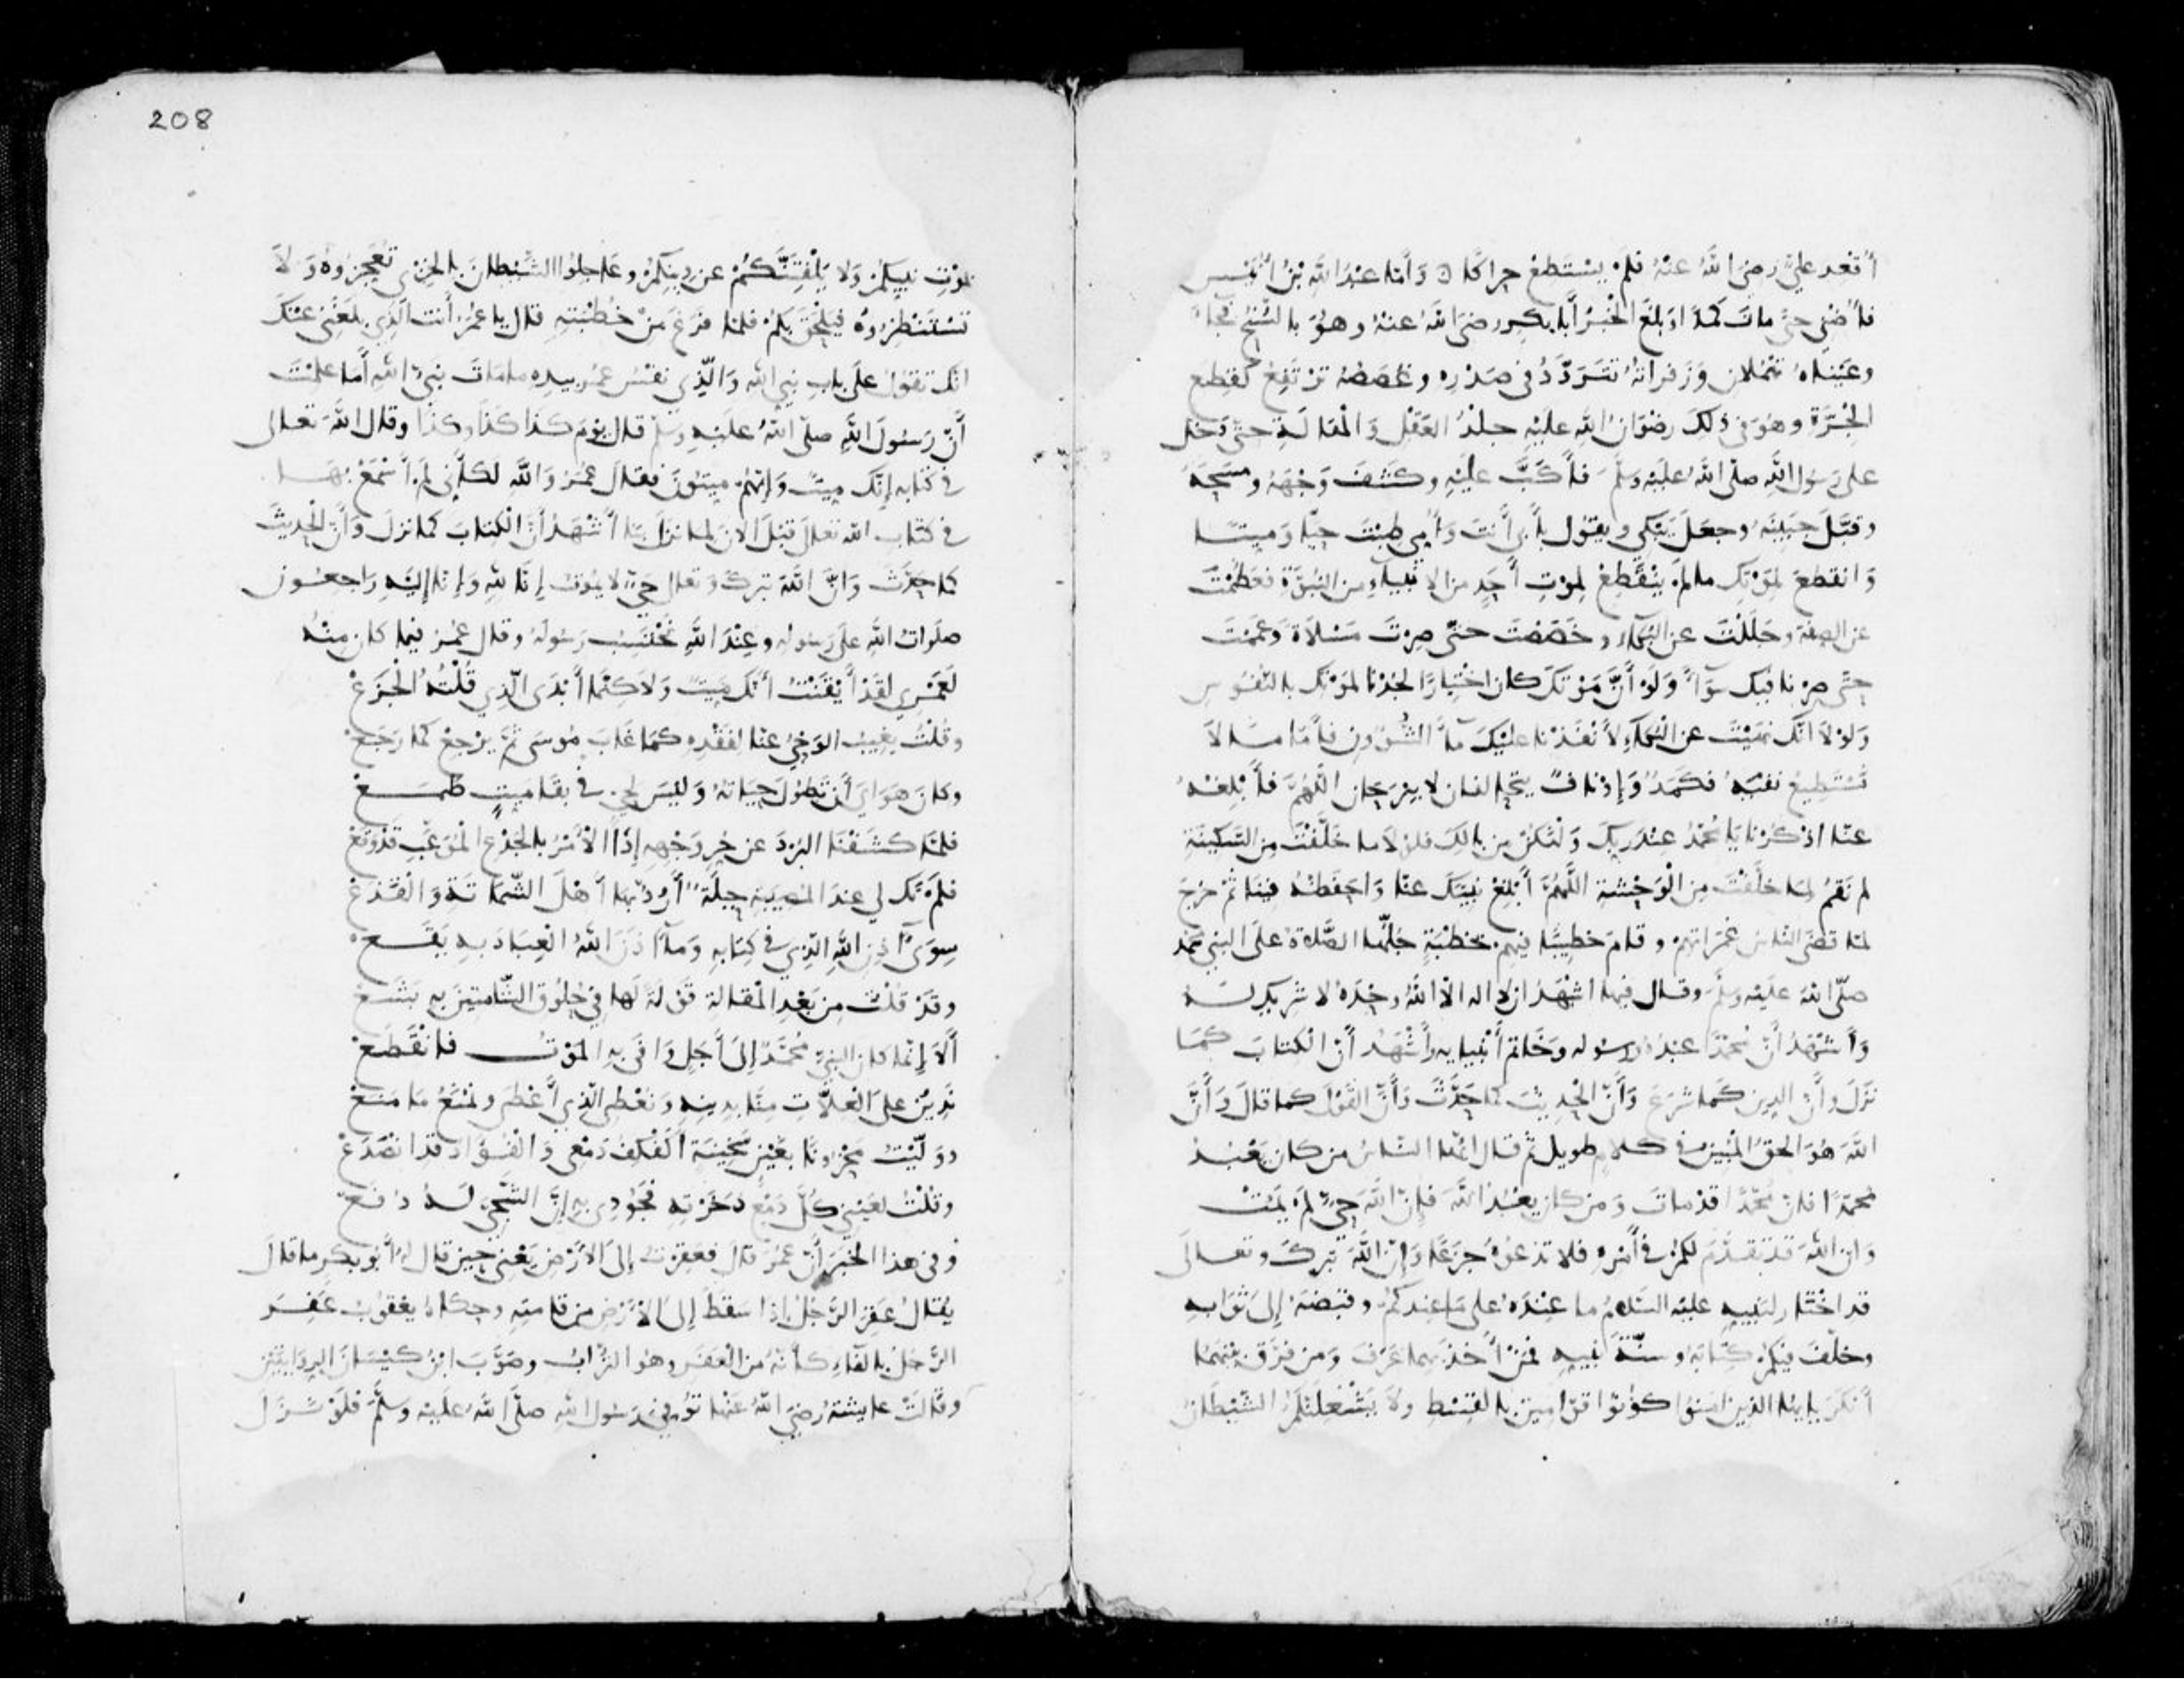 أُقعد عليٌّ رضى اللهُ عنهُ فلم يستطعْ حراكًا وَأمّا عبدُ اللهِ بنُ أُنَيْس
فأُضني حتّى مات كمدًا وبلغ الخبرُ أبا بكرٍ رضى اللهُ عنهُ وهُوَ بالسُّنْحِ فجاءَ
وعَيْناهُ تهملان وَزَفراتُهُ تتردَّدُ في صَدْرِهِ وغُصَصُهُ ترْتَفِعُ كقِطعِ
الجِرَّةِ وهو في ذلك رضوانُ الله عليْهِ جلْدُ العَقْلِ وَالمقالةِ حتّى دخل
على رَسُولِ اللهِ صلّى اللهُ عليْهِ وسلّم فأَكَبَّ عليْهِ وكشَفَ وَجْهَهُ ومسَحَهُ
وقبَّلَ جَبينَهُ وجعَلَ يَبْكي ويقُول بأبي أَنتَ وَأُمّي طِبْتَ حيًّا وَميتًا
وَانقطعَ لمَوْتِك ما لمْ ينْقَطِعْ لموتِ أَحدٍ من الانبياءِ من النبُوَّةِ فعَظُمْتَ
عن الصفةِ وجَلَلْتَ عن البُكاءِ وخَصَصْتَ حتّى صِرْتَ مَسْلاةً وَعَمَمْتَ
حتّى صِرْنا فيك سَوآءً وَلَوْ أَنَّ مَوْتَكَ كان اخْتِيارًا لجُدْنا لموْتِك بالنّفُوسِ
وَلَوْلاَ انّك نهَيْتَ عن البُكاءِ لأَنفَذْنا عليْكَ مآءَ الشُّؤُونِ فأمّا ما لا
نَسْتَطِيعُ نفيَهُ فكَمَدٌ وَإِدْنافٌ يتحالفان لا يبرحان اللّهمَّ فأَبْلِغْهُ
عنّا اذكُرْنا يَا مُحَمَّدُ عِنْدَ ربِّكَ وَلْنَكُنْ مِن بالِكَ فلوْلاَ ما خَلَّفْتَ مِن السَّكينَةِ
لم نَقُمْ لِمَا خلَّفْتَ مِن الوَحْشةِ اللّهمَّ أَبْلِغْ نبيَّكَ عنّا وَاحفَظْهُ فينا ثمّ خرجَ
لمّا قضَى النّاسُ عَبَراتِهِم وقامَ خطيبًا فيهِم بخطبَةٍ جُلُّها الصّلاةُ على النبي محمّد
صلّى اللهُ عليْهِ وسلّم وقال فيها اشهَدُ ان لا اله الاّ اللهُ وحْدَهُ لا شريك لهُ
وَأَشْهَدُ أَنّ مُحمّدًا عبدُهُ ورسوله وخَاتمُ أَنْبيايه وأَشْهَدُ أَنّ الكتابَ كمَا
نزَلَ وأَنّ الدين كما شرَعَ وَأَنّ الحديثَ كما حَدَّثَ وَأَنّ القَوْلَ كما قالَ وَأَنَّ
اللهَ هُوَ الحقُّ المُبينُ في كلامٍ طويل ثم قال ايّها النّاسُ من كان يَعْبُدُ
مُحمّدًا فانّ مُحَمّدًا قدْ ماتَ وَمن كان يعْبُدُ اللهَ فإنّ اللهَ حيٌّ لَمْ يَمُتْ
وَانّ اللهَ قد تقدَّمَ لكُمْ في أَمْرِهِ فلا تدَعُوهُ جزَعًا وَإِنّ اللهَ تبركَ وتعالَى
قد اختَار لنبيهِ عليْهِ السّلامُ ما عِنْدَهُ على مَا عندكُمْ وقبَضَهُ إلى ثَوَابهِ
وخلّفَ فيكُمْ كِتَابَهُ وسنّةَ نبيهِ فمنْ أَخذَ بهما عَرَفَ وَمن فرّق بينهما
أَنكَرَ يا ايّها الذين امَنُوا كُونُوا قوّامينَ بالقِسْطِ ولا يَشْغَلَنَّكُمُ الشّيْطَانُ
بموْتِ نبيِّكُمْ وَلا يَلْفِتَنَّكُمْ عن دِينِكُمْ وعَاجِلُوا الشّيْطانَ بالخِزْي تعْجِزُوهُ وَلاَ
تسْتَنْظِرُوهُ فيَلْحَقَ بكُمْ فلمّا فرَغَ مِنْ خُطْبَتِهِ قال يا عُمَرُ أَنت الّذِي بلَغَني عنْكَ
انّك تقولُ على بابِ نبي الله وَالّذِي نفسُ عمر بيدِهِ ما مَاتَ نبيُّ الله أَما علمْتَ
أَنّ رَسُولَ اللهِ صلّى اللهُ عليْهِ وسلّم قال يوْمَ كذا كذا وكذا وقال اللهُ تعالى
في كتابه إنّك ميتٌ وَإِنّهُم ميتُونَ فقال عُمَرُ وَاللهِ لكَأَنّي لَمْ أَسْمَعْ بهَا
في كتاب الله تعالى قبْلَ الآن لما نزَلَ بنا أَشْهَدُ أَنّ الكتابَ كما نزلَ وَأَنّ الحديثَ
كما حدّثَ وَانّ اللهَ تبرك وَتعالى حيٌّ لا يمُوتُ إِنّا للهِ وَإِنّا إليْهِ رَاجعُون
صلَواتُ اللهِ على رسولِهِ وعِنْدَ اللهِ نَحْتَسِبُ رسُولَهُ وقال عُمرُ فيما كان مِنْهُ
لعَمْرِي لقَدْ أَيْقَنْتُ أَنّكَ مَيّتٌ وَلاَكِنّمَا أَبْدَى الّذِي قُلْتُهُ الجَزَعْ
وقُلْتُ يغيبُ الوَحْيُ عنّا لفقْدِهِ كمَا غَابَ مُوسَى ثمّ يرْجعُ كما رَجَعْ
وكانَ هَوَايَ أَن تَطُولَ حيَاتُهُ وَليْسَ لحيٍّ في بقَا ميّتٍ طمَعْ
فلمّا كشَفْنا البُرْدَ عن حُرِّ وَجْهِهِ إِذا الأَمْرُ بالجَذْعِ المُوَعَّبِ قدْ وَقَعْ
فلَمْ تك لي عندَ المصيبَةِ حيلَةٌ أَرُدُّ بهَا أَهْلَ الشّمَاتَةِ وَالقَذَعْ
سِوَى آذَنِ اللهِ الّذِي في كِتَابِهِ وَمآ آذَنَ اللهُ العِبَادَ بهِ يَقَعْ
وقَدْ قُلْتُ مِن بَعْدِ المقَالةِ قَوْلَةً لَهَا في حُلُوقِ الشّامتِينَ بهِ بَشَعْ
أَلاَ إِنّما كان النبيُّ مُحمّدٌ إلَى أَجَلٍ وَافَى بهِ المَوْتُ فانْقَطَعْ
نَدِينُ علَى العِلاّتِ مِنّا بدِينِهِ وَنُعْطِي الّذِي أَعْطَى ونمْنَعُ مَا مَنَعْ
ووَلّيْتُ محزُونًا بعَيْنٍ سخِينَةٍ أُكَفْكِفُ دَمْعِي وَالفُؤَادُ قدِ انْصَدَعْ
وقُلْتُ لعَيْنِي كُلَّ دَمْعٍ دخَرْتِهِ فجُودِي بهِ إنّ الشّجِيَّ لَهُ دُفَعْ
وفي هذا الخبَرِ أَنّ عُمَرَ قالَ فعَقِرْتُ إلَى الأَرْضِ يَعْني حِينَ قال لهُ أَبُو بكرٍ ما قالَ
يُقالُ عَقِرَ الرّجُلُ إذا سَقَطَ إلَى الأَرْضِ من قامتِهِ وحكاهُ يعْقُوبُ عَفِرَ
الرّجُلُ بالفَاءِ كأَنّهُ من العَفَرِ وهُو التّرَابُ وصَوَّبَ ابْنُ كيْسَانَ الروَايتَيْن
وقَالَتْ عايشَةُ رَضِيَ اللهُ عَنْهَا تُوُفّيَ رَسُولُ اللهِ صلّى اللهُ عليْهِ وسلّمَ فلَوْ نَزَلَ
208